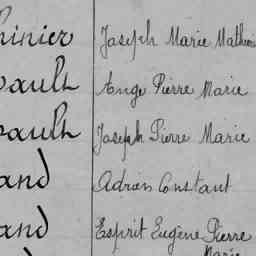 Joseph Marie Mathurin
Ange Pierre Marie
Joseph Pierre Marie
and Adrien Constant
and Esprit Eugène Pierre
Marie